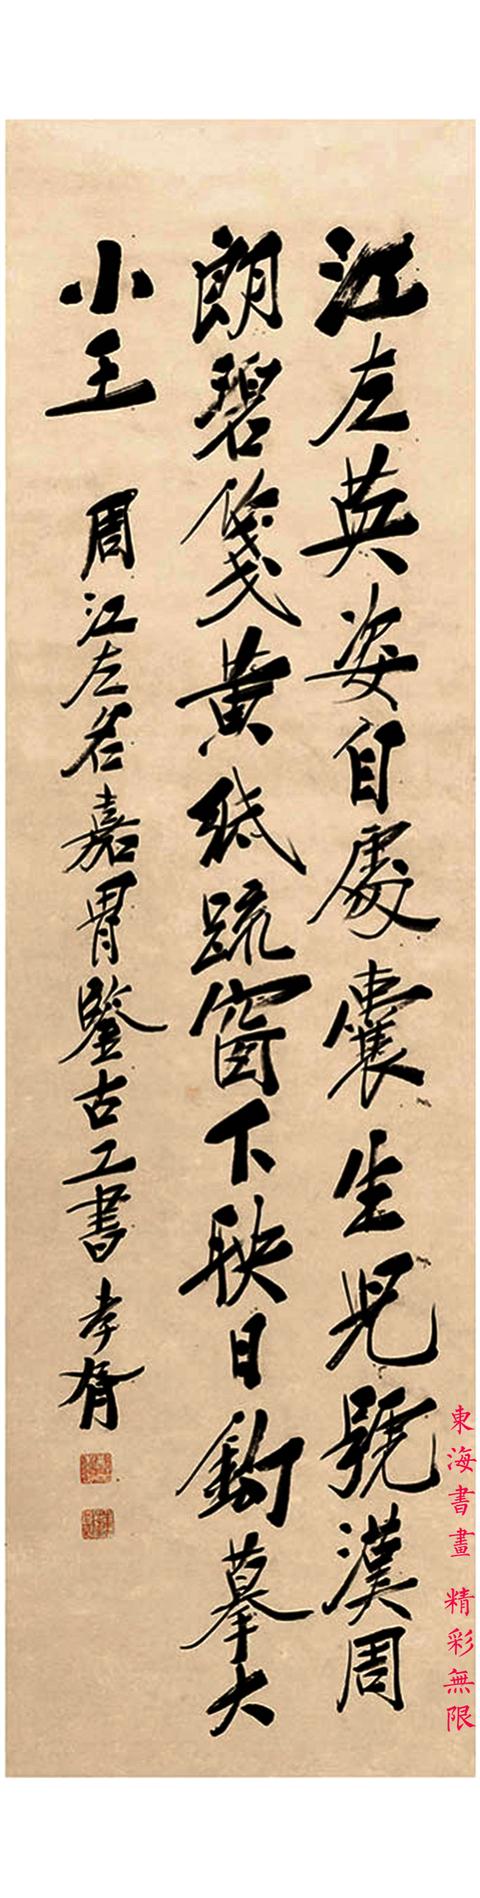 江左英姿自處囊生兒號漢周
朗碧箋黃紙疏窗下映日鉤摹大
小王 周江左名嘉胄鑒古工書 孝胥
東海書畫 精彩無限